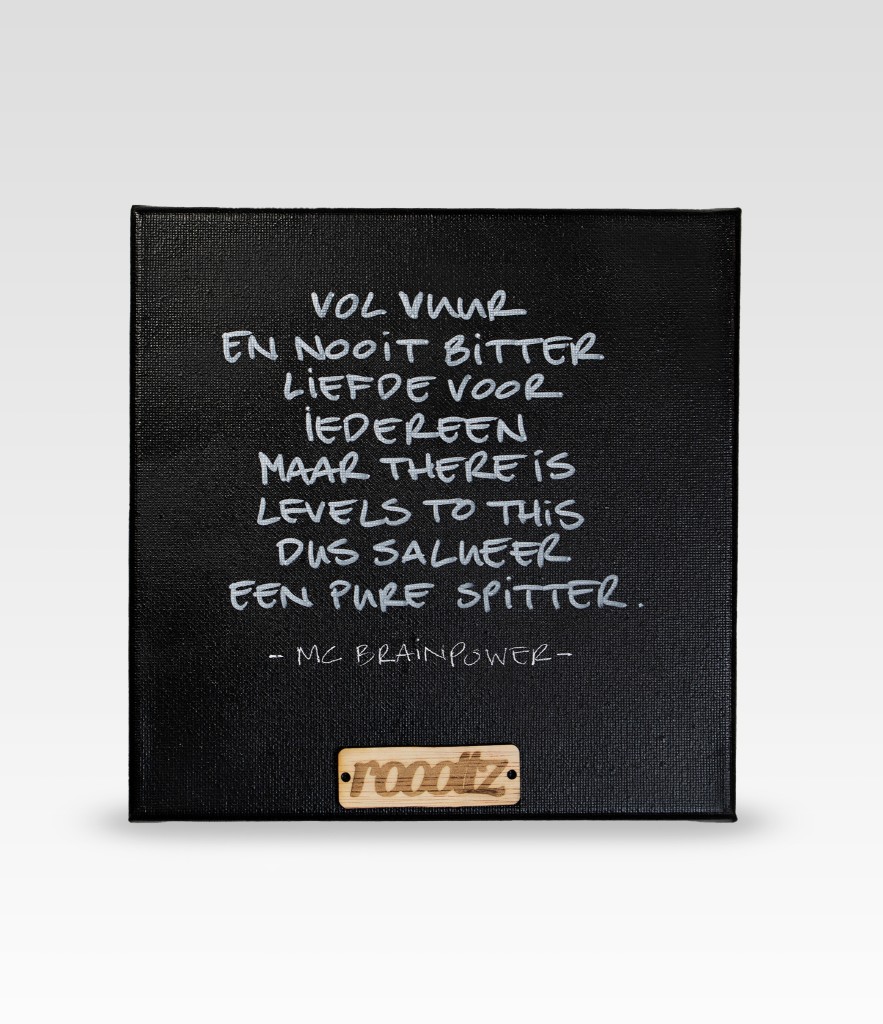 VOL VUUR
EN NOOIT BITTER
LIEFDE VOOR
IEDEREEN
MAAR THERE IS
LEVELS TO THIS
DUS SALUEER
EEN PURE SPITTER.
- MC BRAINPOWER -
roootz